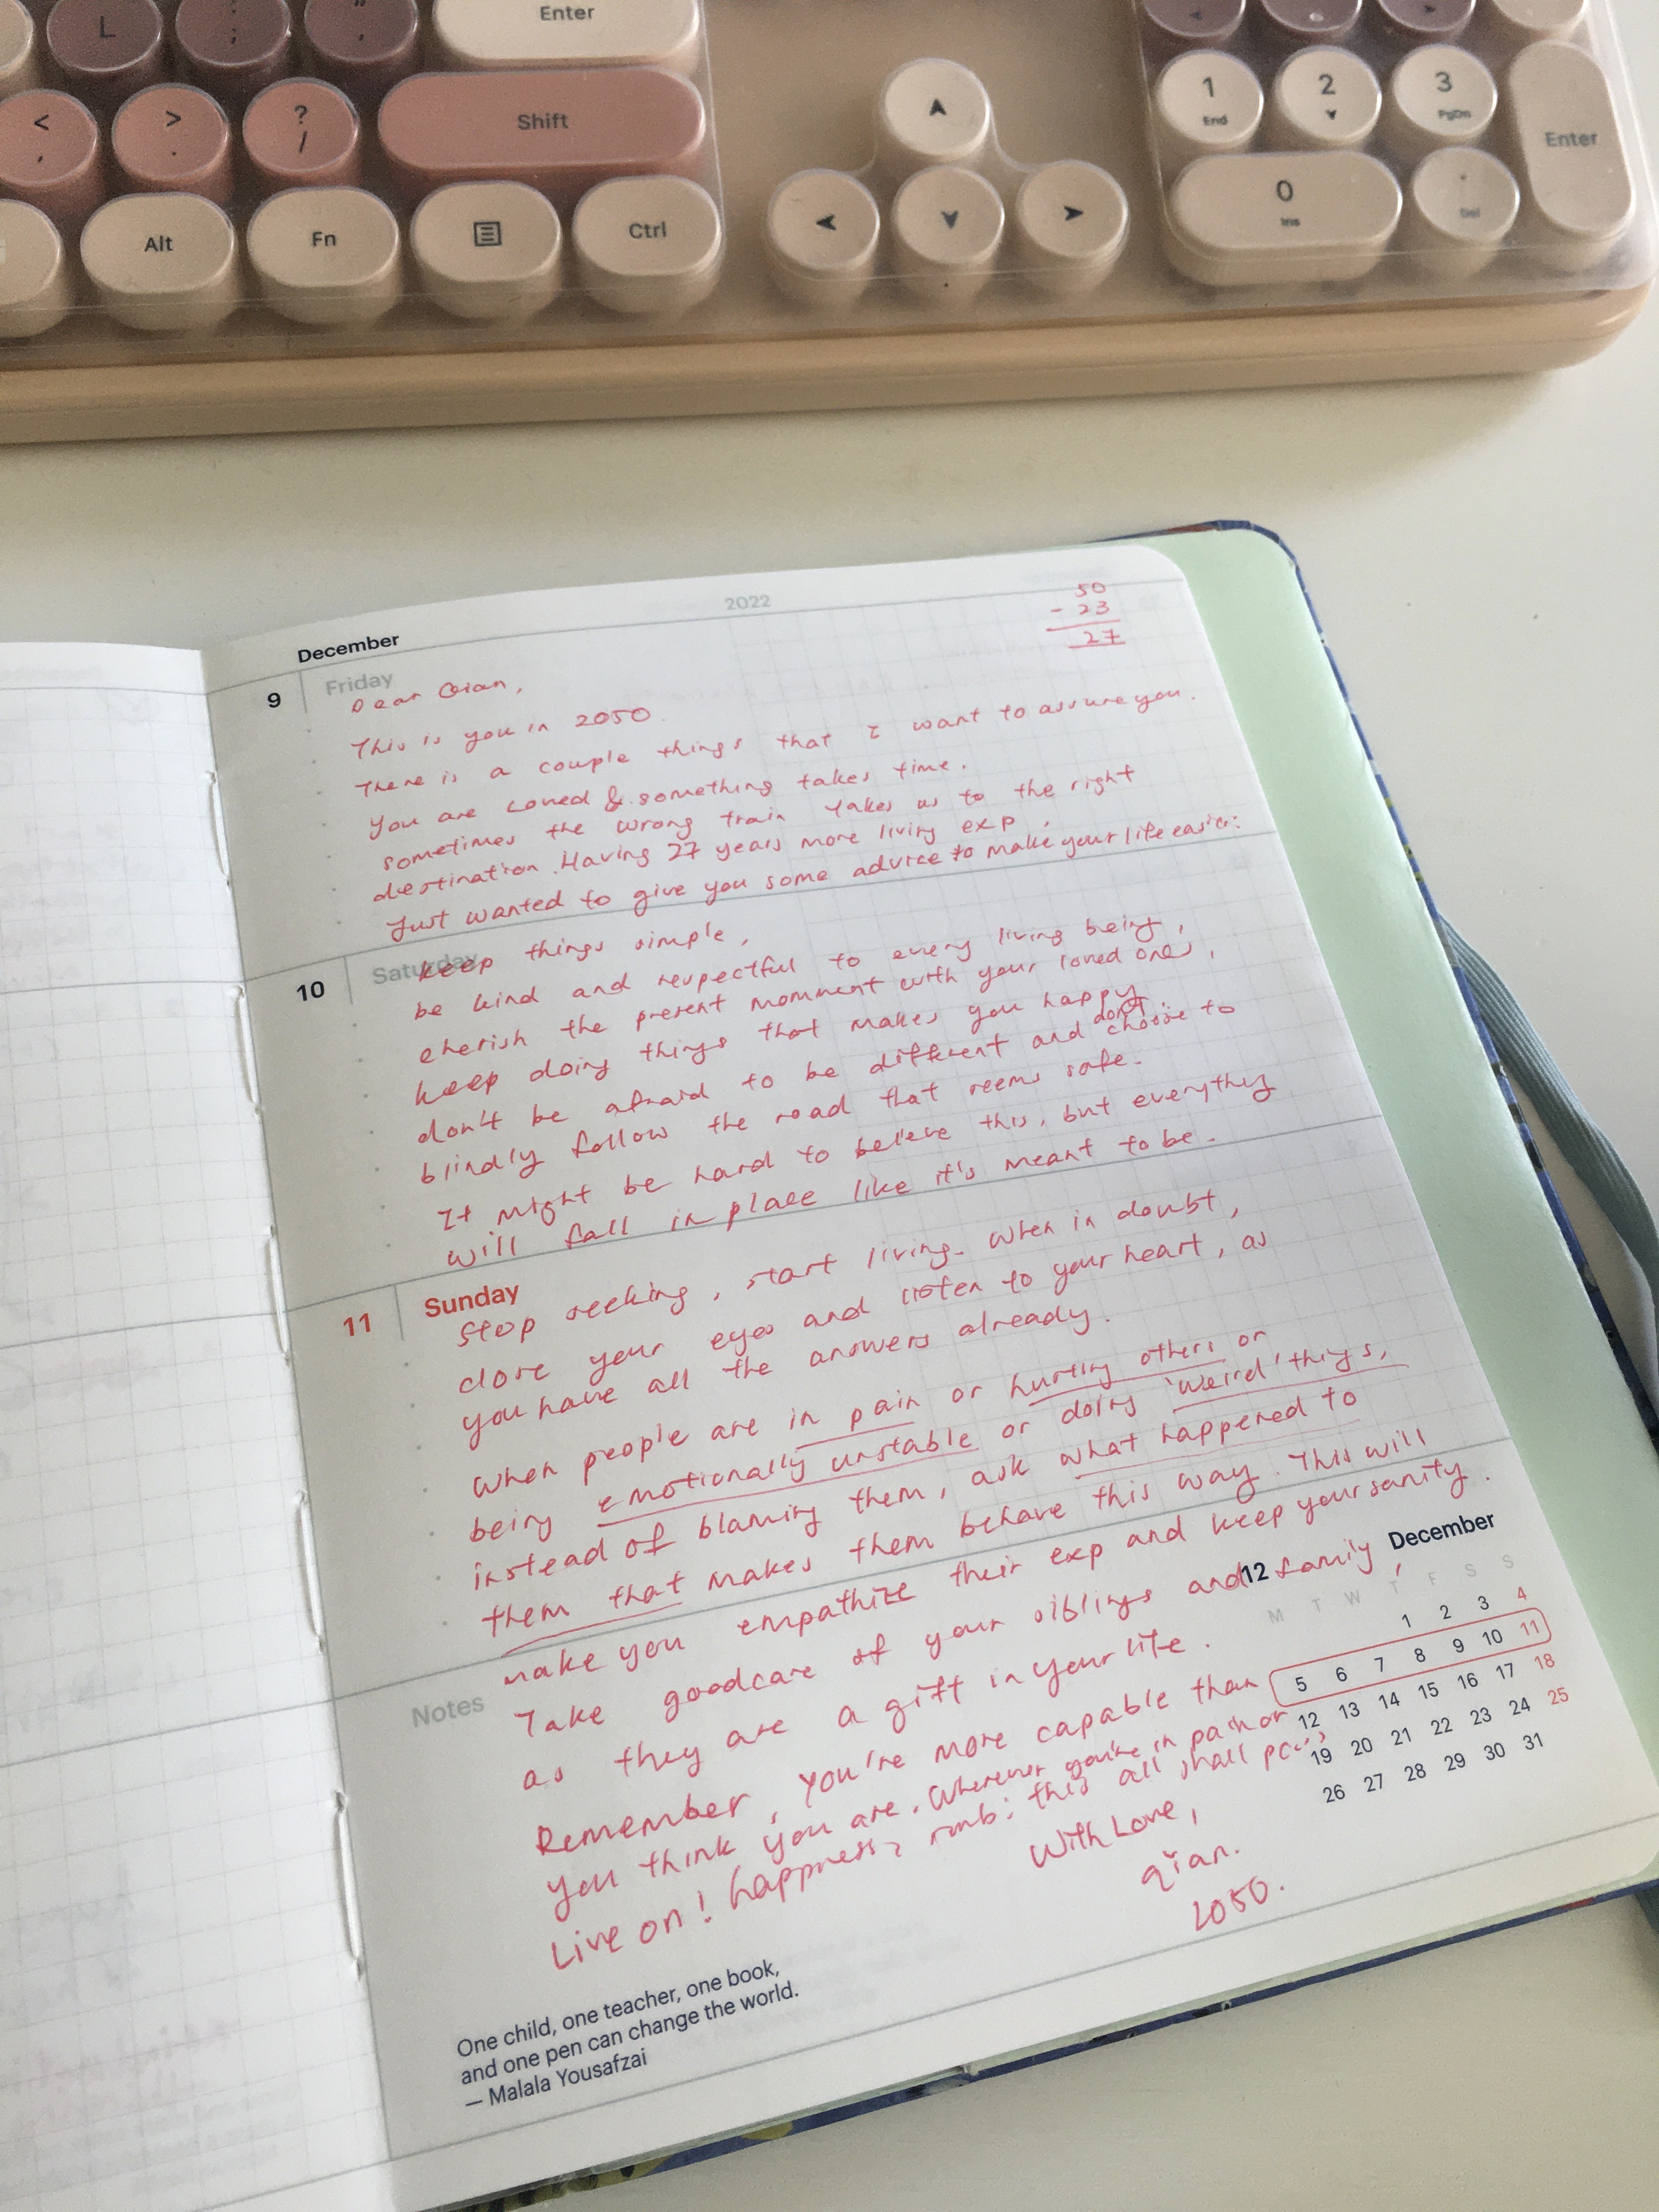 L
:
;
"
'
Enter
<
,
>
.
?
/
Shift
Alt
Fn
Ctrl
1
End
2
3
PgDn
Enter
0
Ins
.
Del
December
2022
50
- 23
27
9
Friday
Dear Qian,
This is you in 2050.
There is a couple things that I want to assure you.
You are loved & something takes time.
sometimes the wrong train takes us to the right
destination. Having 27 years more living exp,
Just wanted to give you some advice to make your life easier:
10
Saturday
keep things simple,
be kind and respectful to every living being,
cherish the present momment with your loved ones,
keep doing things that makes you happy
don't be afraid to be different and don't choose to
blindly follow the road that seems safe.
It might be hard to believe this, but everything
will fall in place like it's meant to be.
11
Sunday
Stop seeking, start living. When in doubt,
close your eyes and listen to your heart, as
you have all the answers already.
When people are in pain or hurting others or
being emotionally unstable or doing 'weird' things,
instead of blaming them, ask what happened to
them that makes them behave this way. This will
make you empathize their exp and keep your sanity.
Notes
Take goodcare of your siblings and family,
as they are a gift in your life.
Remember, you're more capable than
you think you are. Whenever you're in pain or
Live on! happness, rmb: this all shall pass
With Love,
qian.
2050.
12 December
M T W T F S S
1 2 3 4
5 6 7 8 9 10 11
12 13 14 15 16 17 18
19 20 21 22 23 24 25
26 27 28 29 30 31
One child, one teacher, one book,
and one pen can change the world.
— Malala Yousafzai